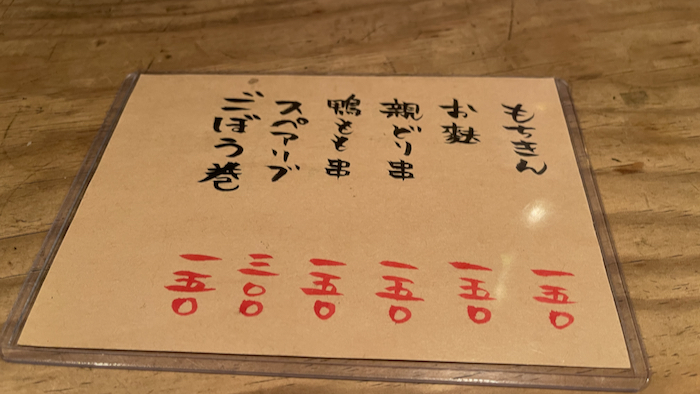 もちきん 一五〇
お麩 一五〇
親どり串 一五〇
鴨もも串 一五〇
スペアリブ 三〇〇
ごぼう巻 一五〇